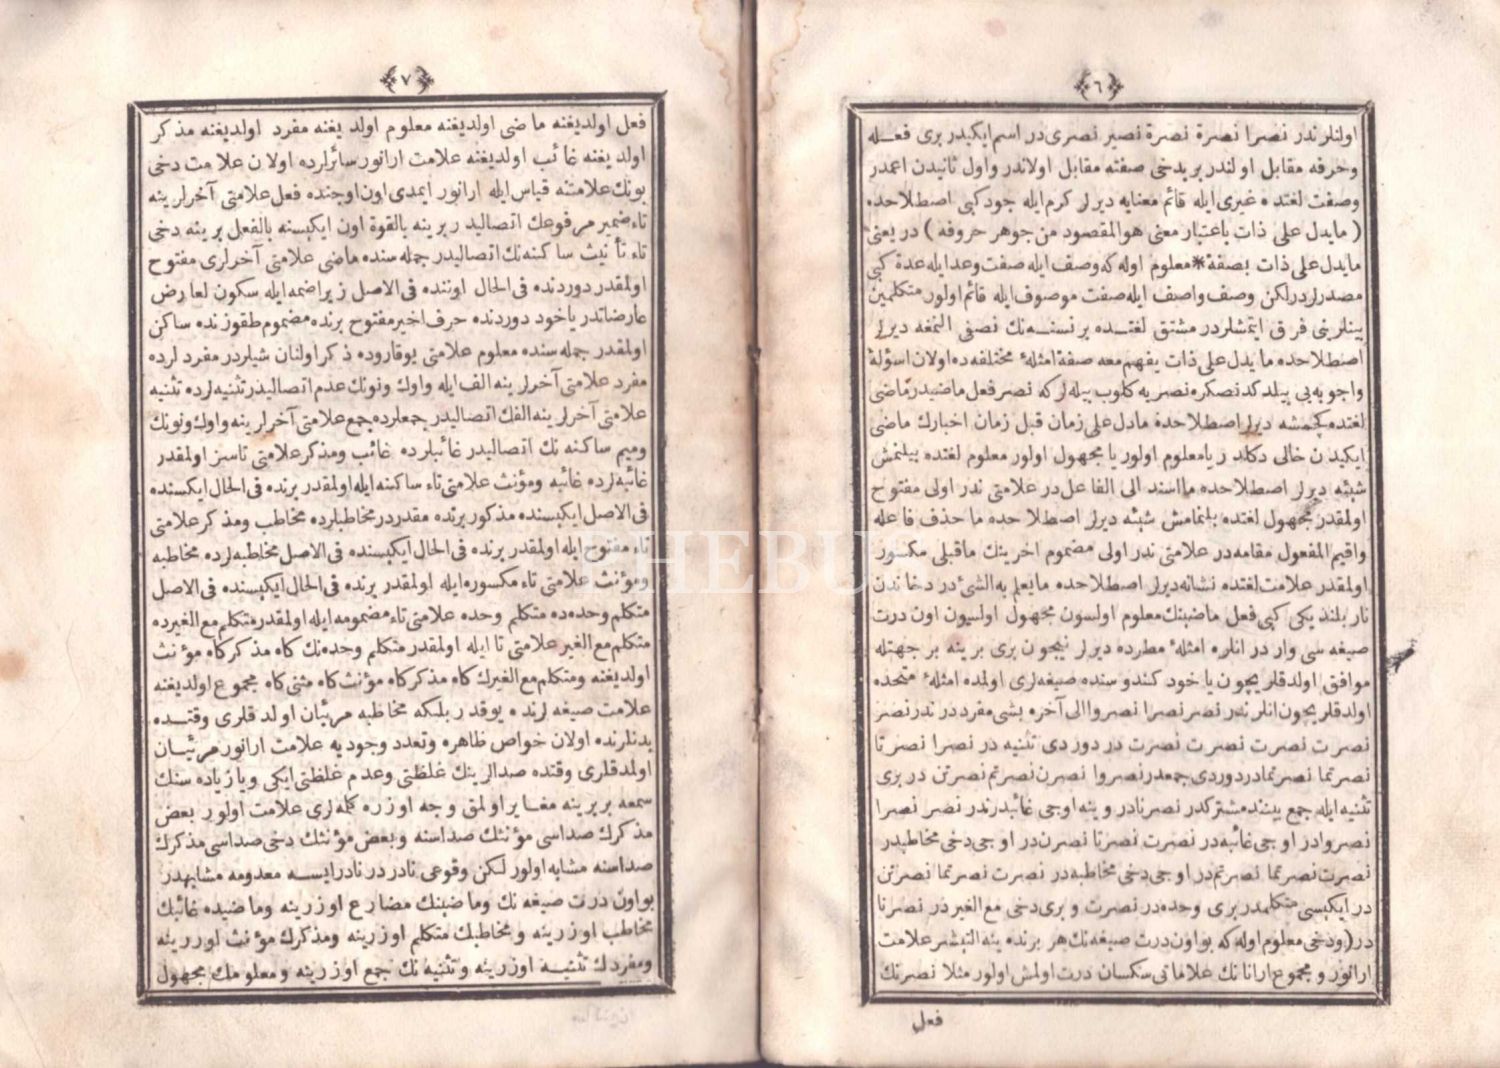 ٦
اولنلرندر نصرا نصرة نصرة نصير نصرى در اسم ايكيدر برى فعله
وحرفه مقابل اولندر بريدخى صفته مقابل اولاندر واول ثانيدن اعمدر
وصفت لغتده غيرى ايله قائم معنايه ديرلر كرم ايله جود كبى اصطلاحده
( مايدل على ذات باعتبار معنى هو المقصود من جوهر حروفه ) در يعنى
مايدل على ذات بصفة * معلوم اوله كه وصف ايله صفت وعد ايله عدة كبى
مصدرلردر لكن وصف واصف ايله صفت موصوف ايله قائم اولور متكلمين
بينلرينى فرق ايتمشلردر مشتق لغتده بر نسنه نك نصفى النمغه ديرلر
اصطلاحده مايدل على ذات يفهم معه صفة امثلهٔ مختلفه ده اولان اسؤلهٔ
واجوبه يى بيلدكدنصكره نصر يه كلوب بيله لر كه نصر فعل ماضيدر ماضى
لغتده كچمشه ديرلر اصطلاحده مادل على زمان قبل زمان اخبارك ماضى
ايكيدن خالى دكلدر يا معلوم اولور يا مجهول اولور معلوم لغتده بيلنمش
شيئه ديرلر اصطلاحده ما اسند الى الفاعل در علامتى ندر اولى مفتوح
اولمقدر مجهول لغتده بلنمامش شيئه ديرلر اصطلاحده ما حذف فاعله
واقيم المفعول مقامه در علامتى ندر اولى مضموم اخرينك ماقبلى مكسور
اولمقدر علامت لغتده نشانه ديرلر اصطلاحده مايعلم به الشئ در دخاندن
نار بلنديكى كبى فعل ماضينك معلوم اولسون مجهول اولسون اون درت
صيغه سى وار در انلره امثلهٔ مطرده ديرلر نيچون برى برينه بر جهتله
موافق اولدقلريچون يا خود كندوسنده صيغه لرى اولمده امثلهٔ متحده
اولدقلريچون انلر ندر نصر نصرا نصروا الى آخره بشى مفرد در ندر نصر
نصرت نصرت نصرت نصرت در دوردى تثنيه در نصرا نصرتا
نصرتما نصرتما در دوردى جمعدر نصروا نصرن نصرتم نصرتن در برى
تثنيه ايله جمع بيننده مشتركدر نصرنا در وينه اوجى غائبدر ندر نصر نصرا
نصروا در اوجى غائبه در نصرت نصرتا نصرن در اوجى دخى مخاطبدر
نصرت نصرتما نصرتم در اوجى دخى مخاطبه در نصرت نصرتما نصرتن
در ايكيسى متكلمدر برى وحده در نصرت وبرى دخى مع الغير در نصرنا
در ( ودخى معلوم اوله كه بو اون درت صيغه نك هر برنده ينه التيشر علامت
ارانور ومجموع ارانانك علاماتى سكسان درت اولمش اولور مثلا نصرنك
فعل
٧
فعل اولديغنه ماضى اولديغنه معلوم اولديغنه مفرد اولديغنه مذكر
اولديغنه غائب اولديغنه علامت ارانور سائرلرده اولان علامت دخى
بونك علامتنه قياس ايله ارانور ايمدى اون اوچنده فعل علامتى آخرلرينه
تاء ضمير مرفوعك اتصاليدر برينه بالقوة اون ايكيسنه بالفعل برينه دخى
تاء تأنيث ساكنه نك اتصاليدر جمله سنده ماضى علامتى آخرلرى مفتوح
اولمقدر دوردنده فى الحال اوننده فى الاصل زيرا ضمه ايله سكون لعارض
عارضاتدر ياخود دوردنده حرف اخير مفتوح برنده مضموم طقوزنده ساكن
اولمقدر جمله سنده معلوم علامتى يوقاروده ذكر اولنان شيلردر مفردلرده
مفرد علامتى آخرلرينه الف ايله واوك ونونك عدم اتصاليدر تثنيه لرده تثنيه
علامتى آخرلرينه الفك اتصاليدر جمعلرده جمع علامتى آخرلرينه واوك ونونك
وميم ساكنه نك اتصاليدر غائبلرده غائب ومذكر علامتى تاسز اولمقدر
غائبه لرده غائبه ومؤنث علامتى تاء ساكنه ايله اولمقدر برنده فى الحال ايكسنده
فى الاصل ايكيسنده مذكور برنده مقدردر مخاطبلرده مخاطب ومذكر علامتى
تاء مفتوح ايله اولمقدر برنده فى الحال ايكيسنده فى الاصل مخاطبه لرده مخاطبه
ومؤنث علامتى تاء مكسوره ايله اولمقدر برنده فى الحال ايكيسنده فى الاصل
متكلم وحده ده متكلم وحده علامتى تاء مضمومه ايله اولمقدر متكلم مع الغيرده
متكلم مع الغير علامتى نا ايله اولمقدر متكلم وحده نك كاه مذكر كاه مؤنث
اولديغنه ومتكلم مع الغيرك كاه مذكر كاه مؤنث كاه مثنى كاه مجموع اولديغنه
علامت صيغه لرنده يوقدر بلكه مخاطبه مرئيان اولدقلرى وقتده
بدنلرنده اولان خواص ظاهره وتعدد وجوديه علامت ارانور مرئيان
اولمدقلرى وقتده صدالرينك غلظتى وعدم غلظتى ايكى ويا زياده سنك
سمعه بربرينه مغاير اولمق وجه اوزره كله لرى علامت اولور بعض
مذكرك صداسى مؤنثك صداسنه وبعض مؤنثك دخى صداسى مذكرك
صداسنه مشابه اولور لكن وقوعى نادردر نادر ايسه معدومه مشابهدر
بو اون درت صيغه نك وماضينك مضارع اوزرينه وماضيده غائبك
مخاطب اوزرينه ومخاطبك متكلم اوزرينه ومذكرك مؤنث اوزرينه
ومفردك تثنيه اوزرينه وتثنيه نك جمع اوزرينه ومعلومك مجهول
PHEBUS